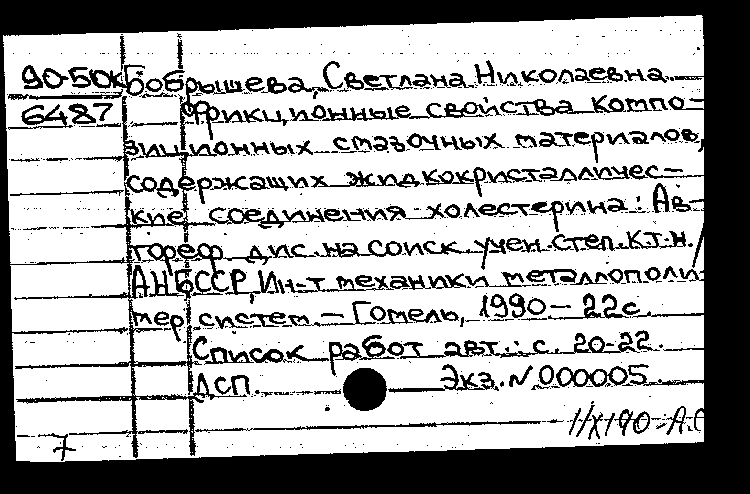 90-5ДК Бобрышева, Светлана Николаевна
6487 Фрикционные свойства компо-
зиционных смазочных материалов,
содержащих жидкокристалличес-
кие соединения холестерина: Ав-
тореф дис. на соиск. учен. степ. к.т.н. /
АН БССР, Ин-т механики металлополи-
мер систем. - Гомель, 1990 - 22с.
Список работ авт.: с. 20-22.
ДСП. Экз. N 000005.
1/X190-А.С
7